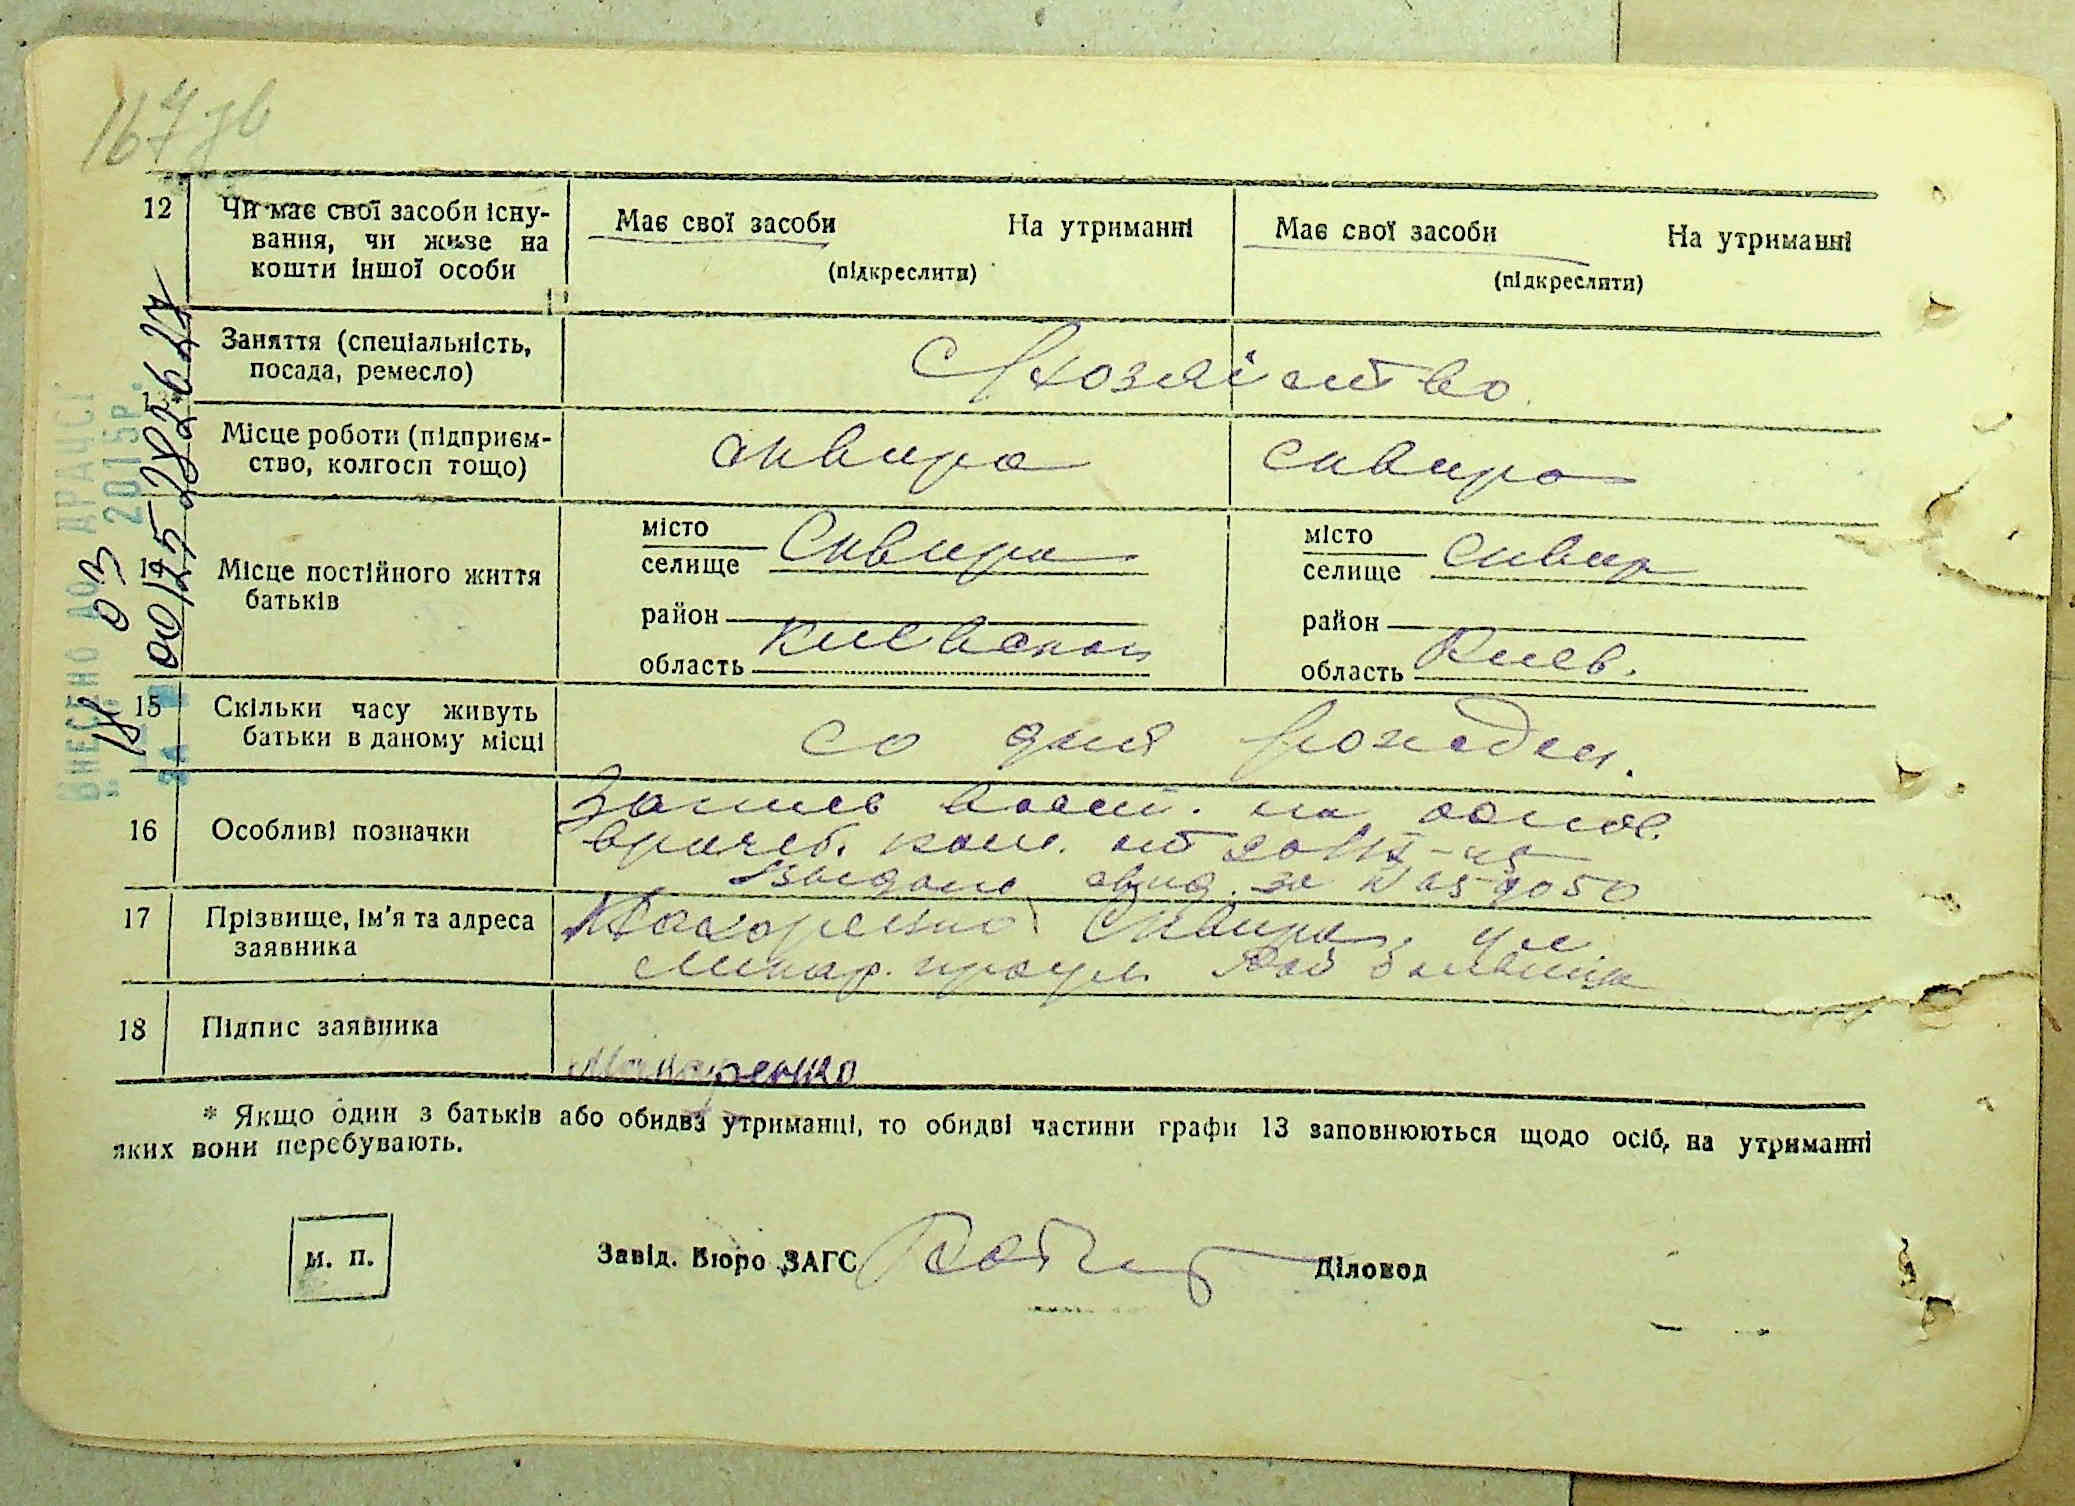 167 зв
12 Чи має свої засоби існу-
вання, чи живе на
кошти іншої особи
Має свої засоби На утриманні
(підкреслити)
Має свої засоби На утриманні
(підкреслити)
Заняття (спеціальність,
посада, ремесло)
С/хозяйство
Місце роботи (підприєм-
ство, колгосп тощо)
Сквира Сквира
Місце постійного життя
батьків
місто
селище Сквира
район
область Киевской
місто
селище Сквир
район
область Киев.
15 Скільки часу живуть
батьки в даному місці
со дня рожден.
16 Особливі позначки
Запись восст. на основ.
врачеб. ком. от
свид. за №
17 Прізвище, ім'я та адреса
заявника
Макаренко Сквира, ул
18 Підпис заявника
Макаренко
* Якщо один з батьків або обидва утриманці, то обидві частини графи 13 заповнюються щодо осіб, на утриманні
яких вони перебувають.
М. П.
Завід. Бюро ЗАГС
Діловод
ВНЕСЕНО ДО ДРАЦСГ
18 03 2015р.
ЗА № 00125282562